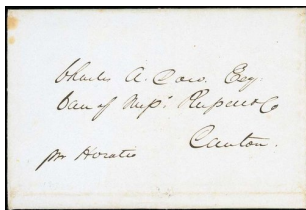 Charles A. Low. Esq.
Care of Messrs. Russell & Co
Canton.
per Horatio